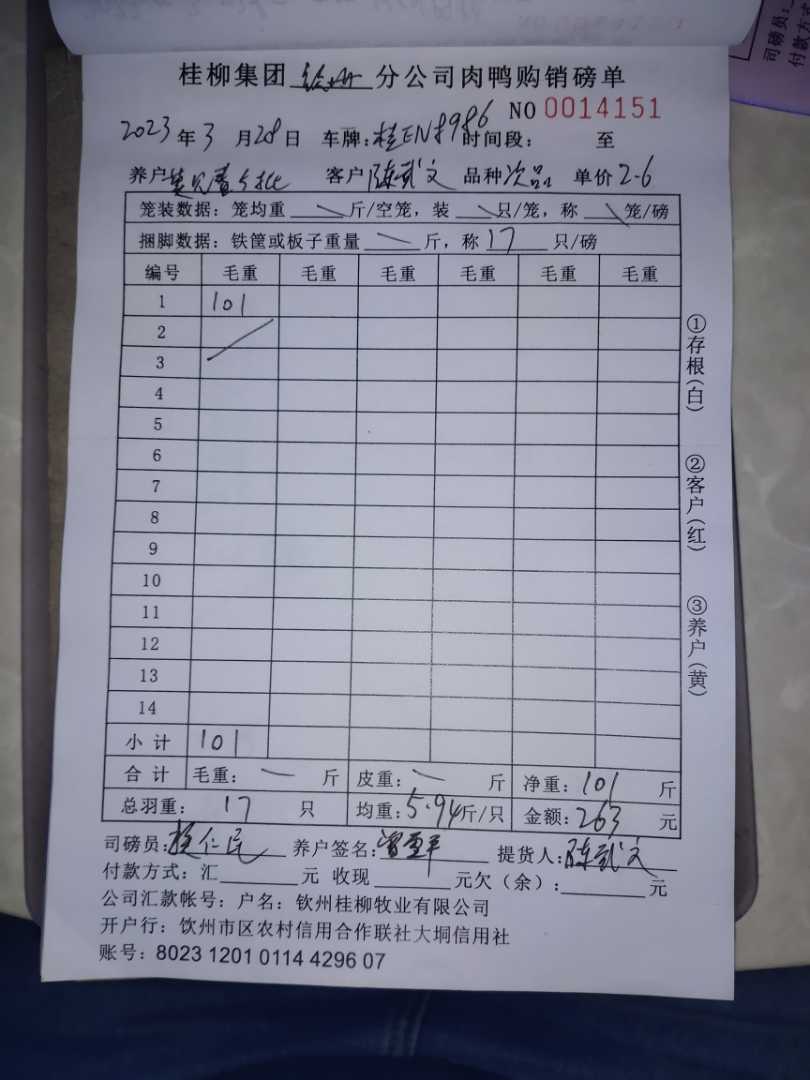 桂柳集团 分公司肉鸭购销磅单
NO 0014151
2023年3月28日 车牌:桂EN8986 时间段: 至
养户 客户陈武文 品种次品 单价2.6
笼装数据:笼均重 斤/空笼,装 只/笼,称 笼/磅
捆脚数据:铁筐或板子重量 斤,称17只/磅
编号 毛重 毛重 毛重 毛重 毛重 毛重
1 101
2
3
4
5
6
7
8
9
10
11
12
13
14
小计 101
合计 毛重: 斤 皮重: 斤 净重:101斤
总羽重: 17 只 均重:5.94斤/只 金额:263元
司磅员: 仁民 养户签名: 提货人:陈武文
付款方式:汇 元 收现 元欠(余): 元
公司汇款帐号:户名:钦州桂柳牧业有限公司
开户行:钦州市区农村信用合作联社大垌信用社
账号:8023 1201 0114 4296 07
①存根(白)
②客户(红)
③养户(黄)
司磅员:
付款方式